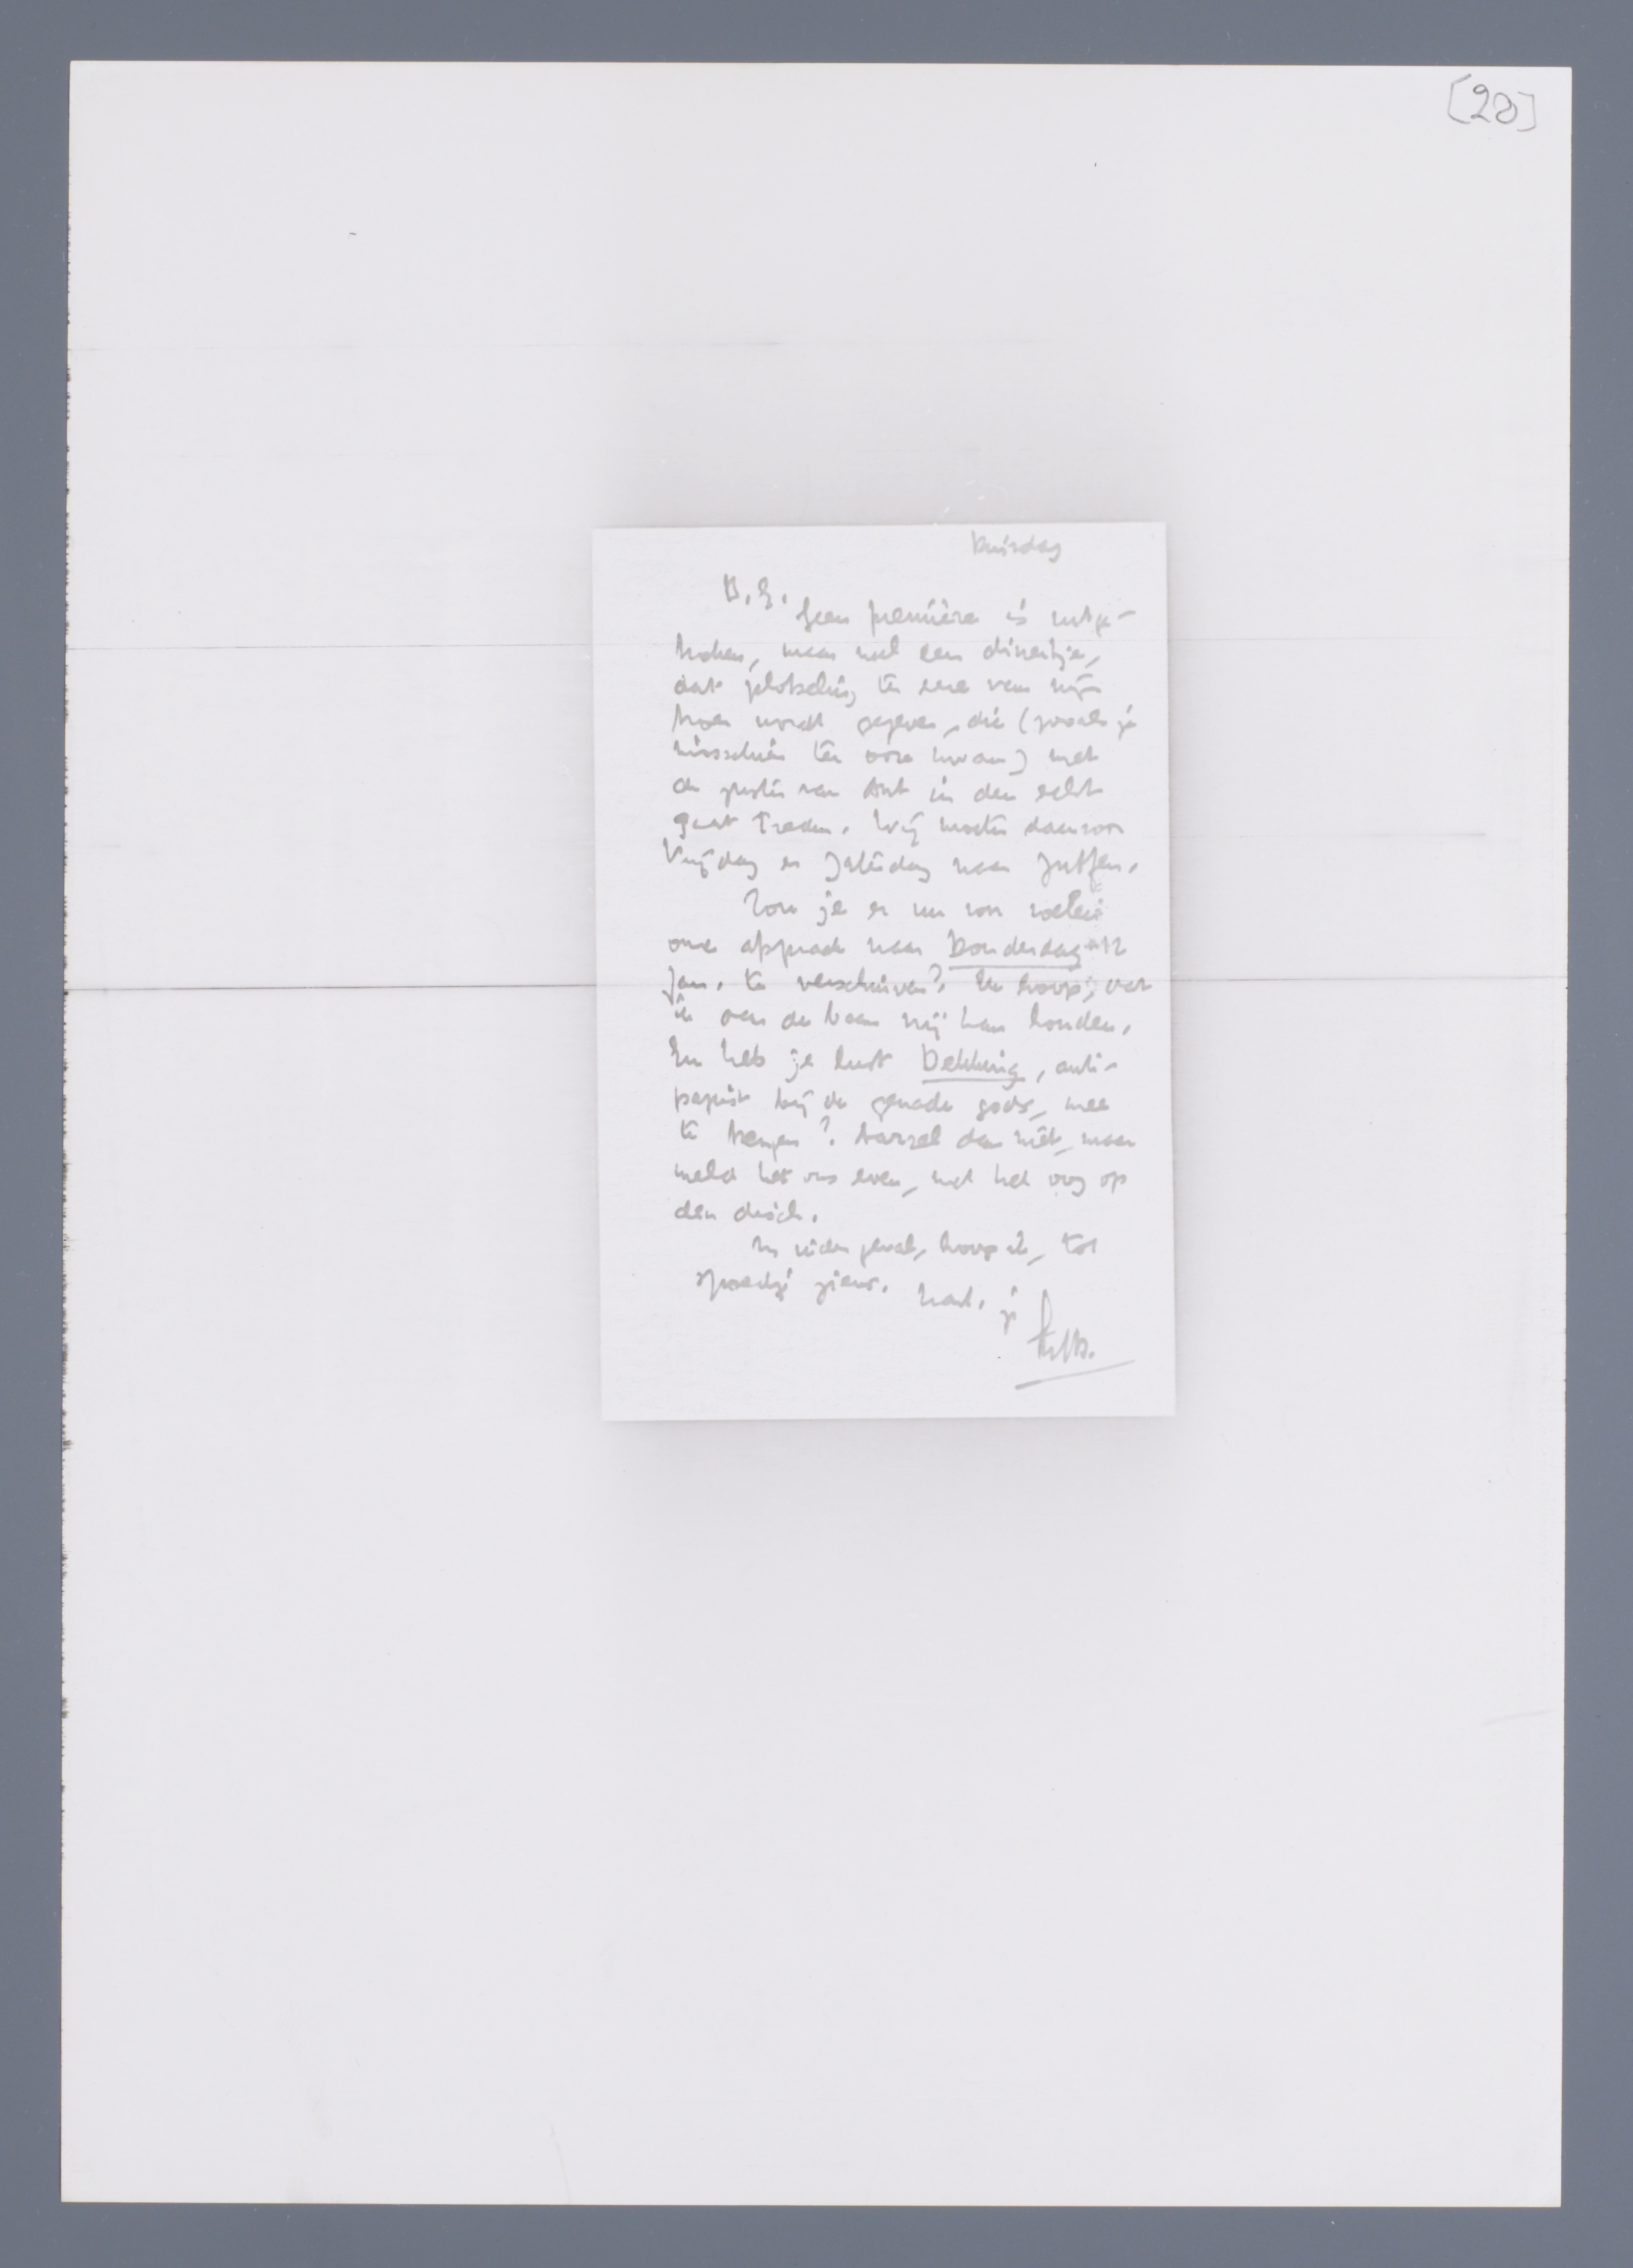 [20]
Dinsdag
B. G.
Geen première is uitge-
broken, maar wel een dineitje,
dat plotseling ter eere van mijn
broer wordt gegeven, die (zooals je
misschien ter oore kwam) met
de zuster van Ant in den echt
gaat treden. Wij moeten daarvoor
Vrijdag en Zaterdag naar Zutfen.
Zou je er nu voor voelen
onze afspraak naar Donderdag 12
Jan. te verschuiven? Ik hoop, dat
ik dan de baan vrij kan houden.
En heb je lust Dekking, anti-
papist bij de genade gods, mee
te brengen? Aarzel dan niet, maar
meld het ons even, met het oog op
den disch.
In ieder geval, hoop ik, tot
spoedig ziens. Hart. gr